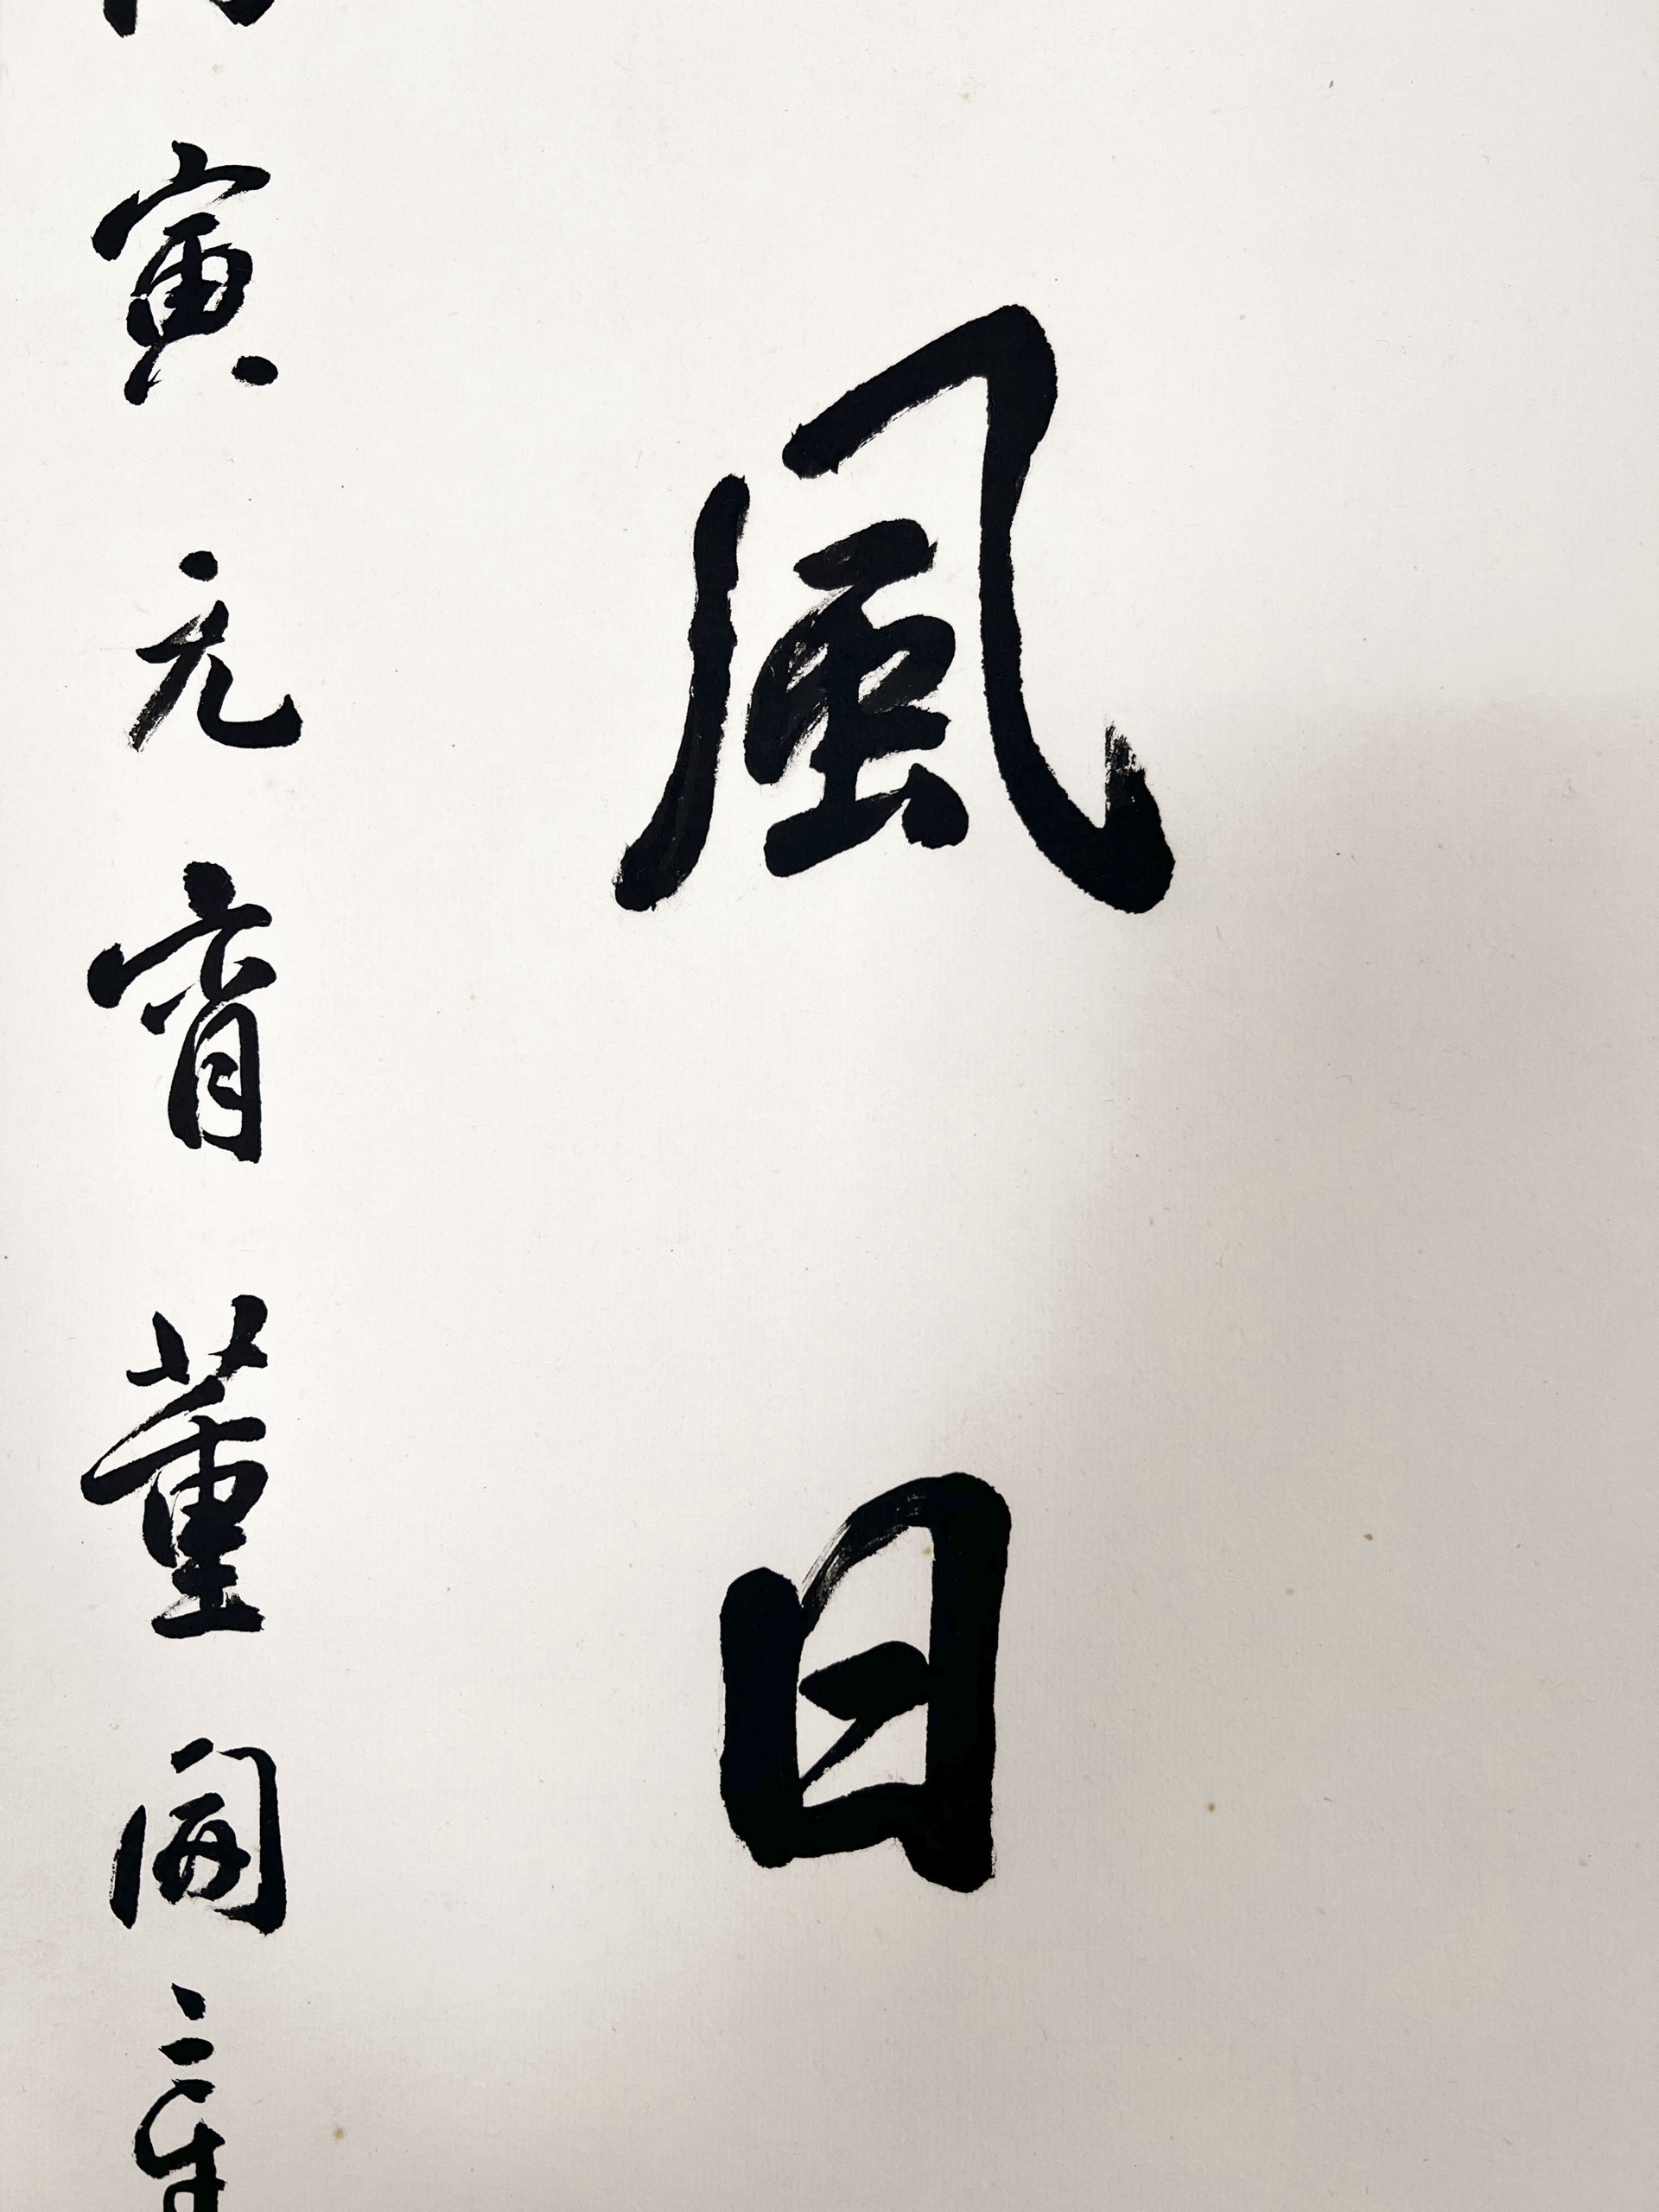 風日
寅元宵董開章